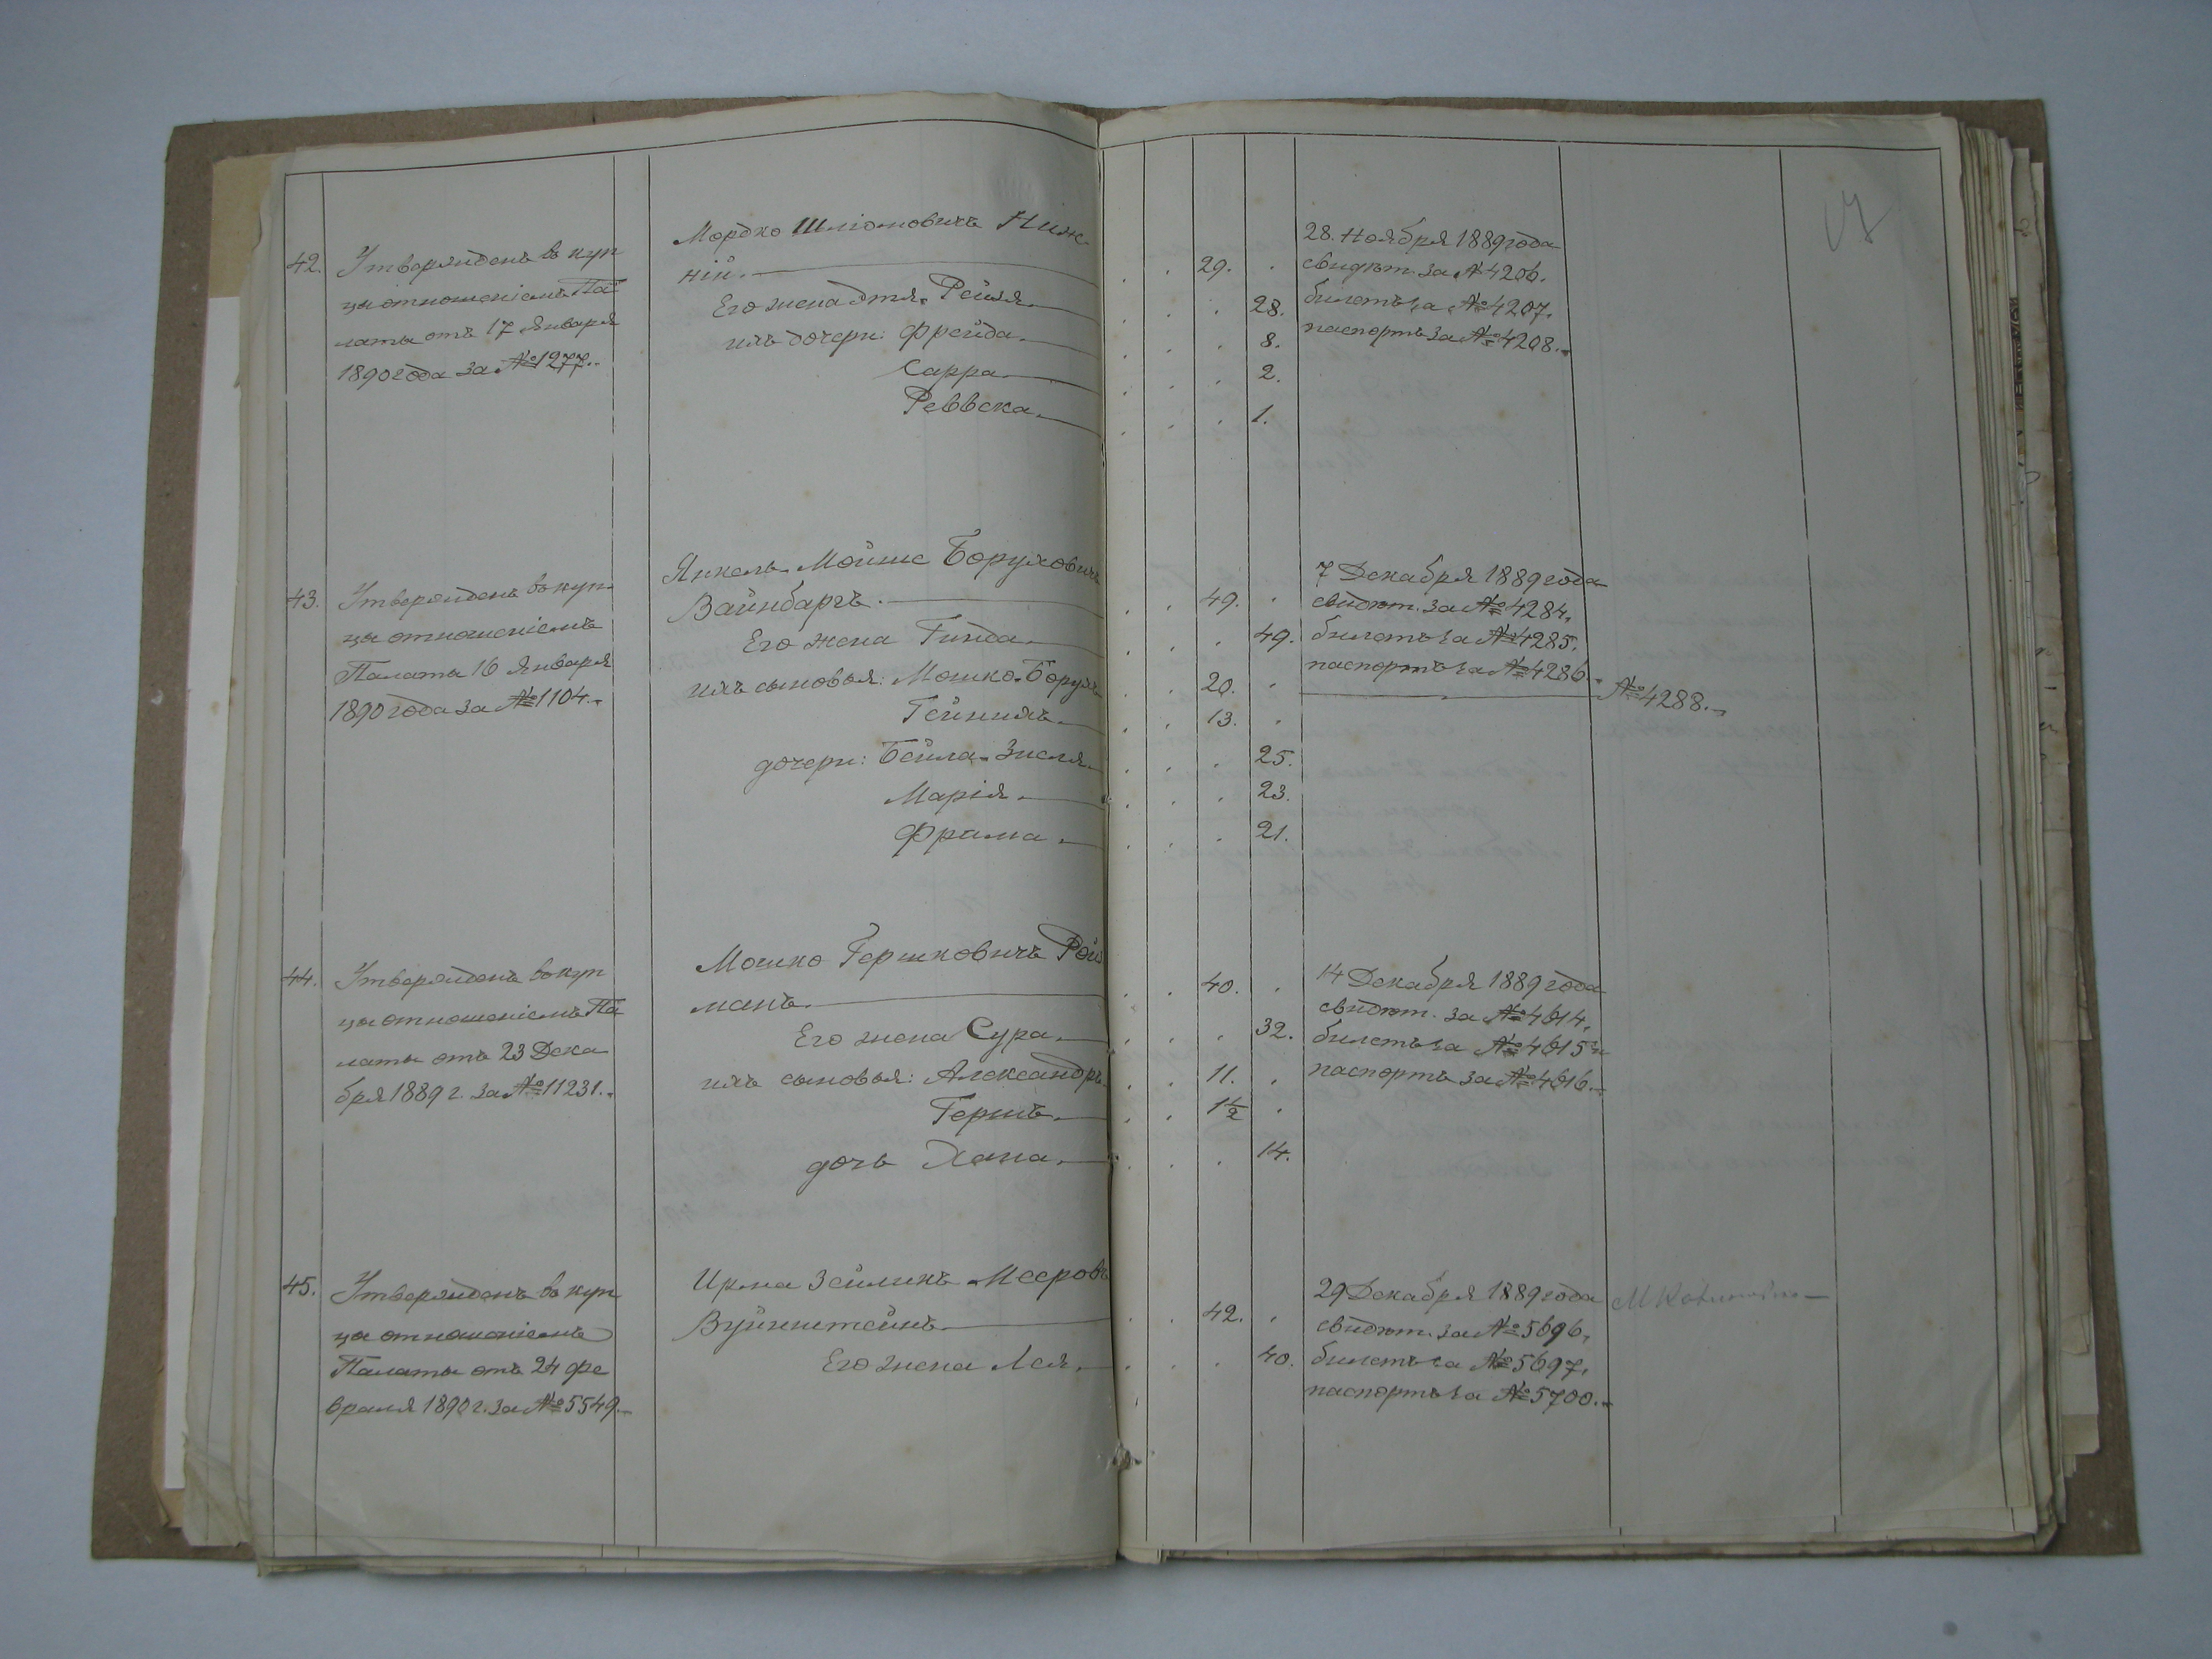 42.
Утвержденъ въ куп
цы отношеніемъ Па
латы отъ 17 Января
1890 года за №1277.
Мордко Шліомовичъ Ниж-
ній.
Его жена Этя-Рейзя
ихъ дочери: Фрейда.
Сарра.
Реввека.
29.
28.
8.
2.
1.
28. Ноября 1889 года
свидѣт. за №4206.
билетъ за №4207.
паспортъ за №4208.
43.
Утвержденъ въ куп-
цы отношеніемъ
Палаты 16 Января
1890 года за №1104.
Янкель-Мойше Боруховичъ
Вайнбаргъ.
Его жена Гинда.
ихъ сыновья: Мошко-Борухъ
Гейнихъ.
дочери: Бейла-Зисля.
Марія.
Фрима.
49.
49.
20.
13.
25.
23.
21.
7 Декабря 1889 года
свидѣт. за №4284.
билетъ за №4285.
паспортъ за №4286.
№4288.
44.
Утвержденъ въ куп
цы отношеніемъ Па
латы отъ 23 Дека
бря 1889 г. за №11231.
Мошко Гершковичъ Рой
манъ.
Его жена Сура.
ихъ сыновья: Александръ.
Гершъ.
дочь Хана.
40.
32.
11.
1½
14.
14 Декабря 1889 года
свидѣт. за №4614.
билетъ за №4615 и
паспортъ за №4616.
45.
Утвержденъ въ куп
цы отношеніемъ
Палаты отъ 24 Фе
враля 1890 г. за №5549.
Ирма Зейликъ Мееровъ
Вуйнштейнъ.
Его жена Лея.
42.
40.
29 Декабря 1889 года
свидѣт. за №5696.
билетъ за №5697.
паспортъ за №5700.